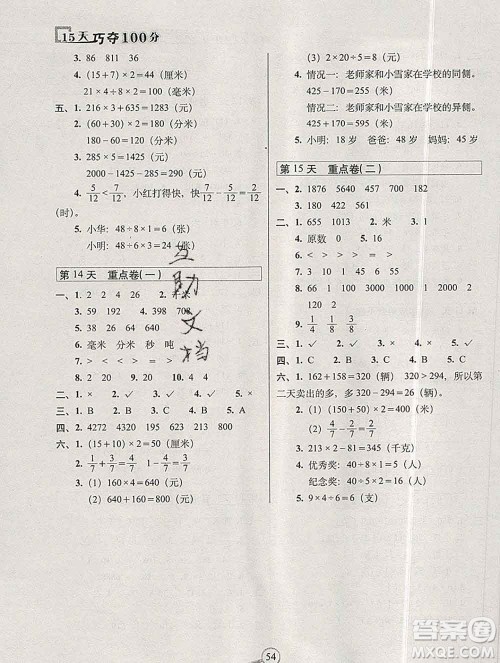 15天巧夺100分
3. 86 811 36
4. (15+7)×2=44(厘米)
21×4=84(厘米) 100(毫米)
五、1. 216×3+635=1283(元)
2. (60+30)×2=180(分米)
60+30×2=120(分米)
3. 285×5=1425(元)
2000-1425=575(元)
4. 5/12<7/12,小红打得快,快7/12-5/12=2/12
(时)。
5. 小华:48÷8×1=6(张)
小明:48÷6×3=24(张)
第14天 重点卷(一)
一、1. 2 2 4 26 2. 米 米
3. 59 192 4. 398 708
5. 22 22
6. 毫米 分米 秒 吨
7. < > = > > <
8. 14 9. 120 10. 4 4
二、1. × 2. ✓ 3. ✓ 4. ✓ 5. ×
三、1. B 2. B 3. A 4. C 5. A
四、2. 4272 4320 657 213 630
六、1. (15+10)×2=50(厘米)
2. 1/7+3/7=4/7 1-4/7=3/7
3. (1) 160×4=640(元)
(2) 640+160=800(元)
(3) 2×20÷5=8(元)
4. 情况一:老师家和小雪家在学校的同侧。
425-170=255(米)
情况二:老师家和小雪家在学校的异侧。
425+170=595(米)
5. 小明:18岁 爸爸:48岁 妈妈:45岁
第15天 重点卷(二)
一、2. 1876 5640 457 700
3. 180 1 150
二、1. 655 1013 2. 米
4. 原数 0
5. < > > >
6. 66 88 1000 30 2 3000 1
9. 1/4 1/8
三、1. × 2. ✓ 3. × 4. ✓
四、1. C 2. B 3. A 4. C
六、1. 162+158=320(辆) 320>294,所以第
二天卖出的多,多320-294=26(辆)
2. (1) (150+50)×2=400(米)
(2) 4/7-2/7=2/7
3. 213×2-81=345(千克)
4. 优秀奖:40÷8×1=5(人)
纪念奖:40÷5×2=16(人)
5. 9×4÷6=6(支)
互
助
文
档
54
作业精灵
MXQE.COM